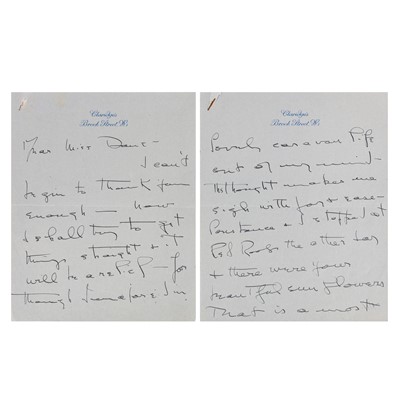 Claridge's
Brook Street. W.
Dear Miss Dane -
I can't
begin to thank you
enough - now
I shall try to get
things straight & it
will be a relief - for
though I
Claridge's
Brook Street. W.
lovely caravan life
out of my mind -
The thought makes me
sigh with joy & ease -
Constance & I stopped at
Red Roofs the other day
& there were your
beautiful sun flowers
That is a most